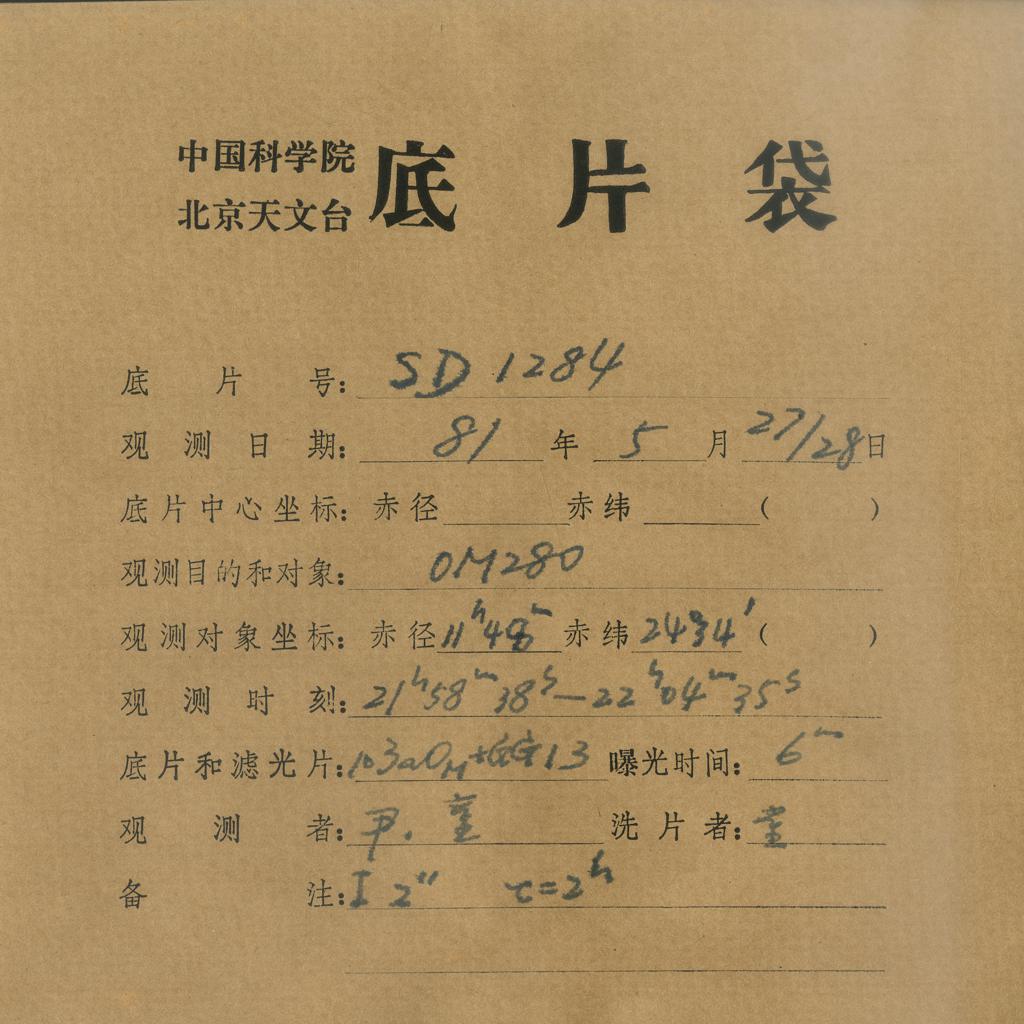 中国科学院
北京天文台
底片袋
底片号：SD 1284
观测日期：81年5月27/28日
底片中心坐标：赤径 赤纬 （ ）
观测目的和对象：OM280
观测对象坐标：赤径11ʰ48ᵐ赤纬24°34′（ ）
观测时刻：21ʰ58ᵐ38ˢ—22ʰ04ᵐ35ˢ
底片和滤光片：103aO 13 曝光时间：6ᵐ
观测者：尹. 洗片者：
备注：I 2″ t=2ʰ